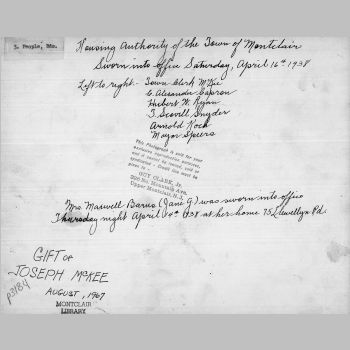 3. People, Etc.
Housing Authority of the Town of Montclair
Sworn into office Saturday, April 16th 1938
Left to right - Town Clerk McKee
C. Alexander Capron
Hubert H. Ryan
T. Scovill Snyder
Arnold Koch
Mayor Speers
This Photograph is sold for your
exclusive reproduction purposes,
and it cannot be loaned, sold or
syndicated. Credit line must be
given to -
GUY CLARK, Jr.
Upper Montclair, N.J.
Mrs. Maxwell Barus (Jane G) was sworn into office
Thursday night April 14th 1938 at her home 75 Llewellyn Rd.
GIFT OF
JOSEPH McKEE
AUGUST, 1967
MONTCLAIR
LIBRARY
p3184